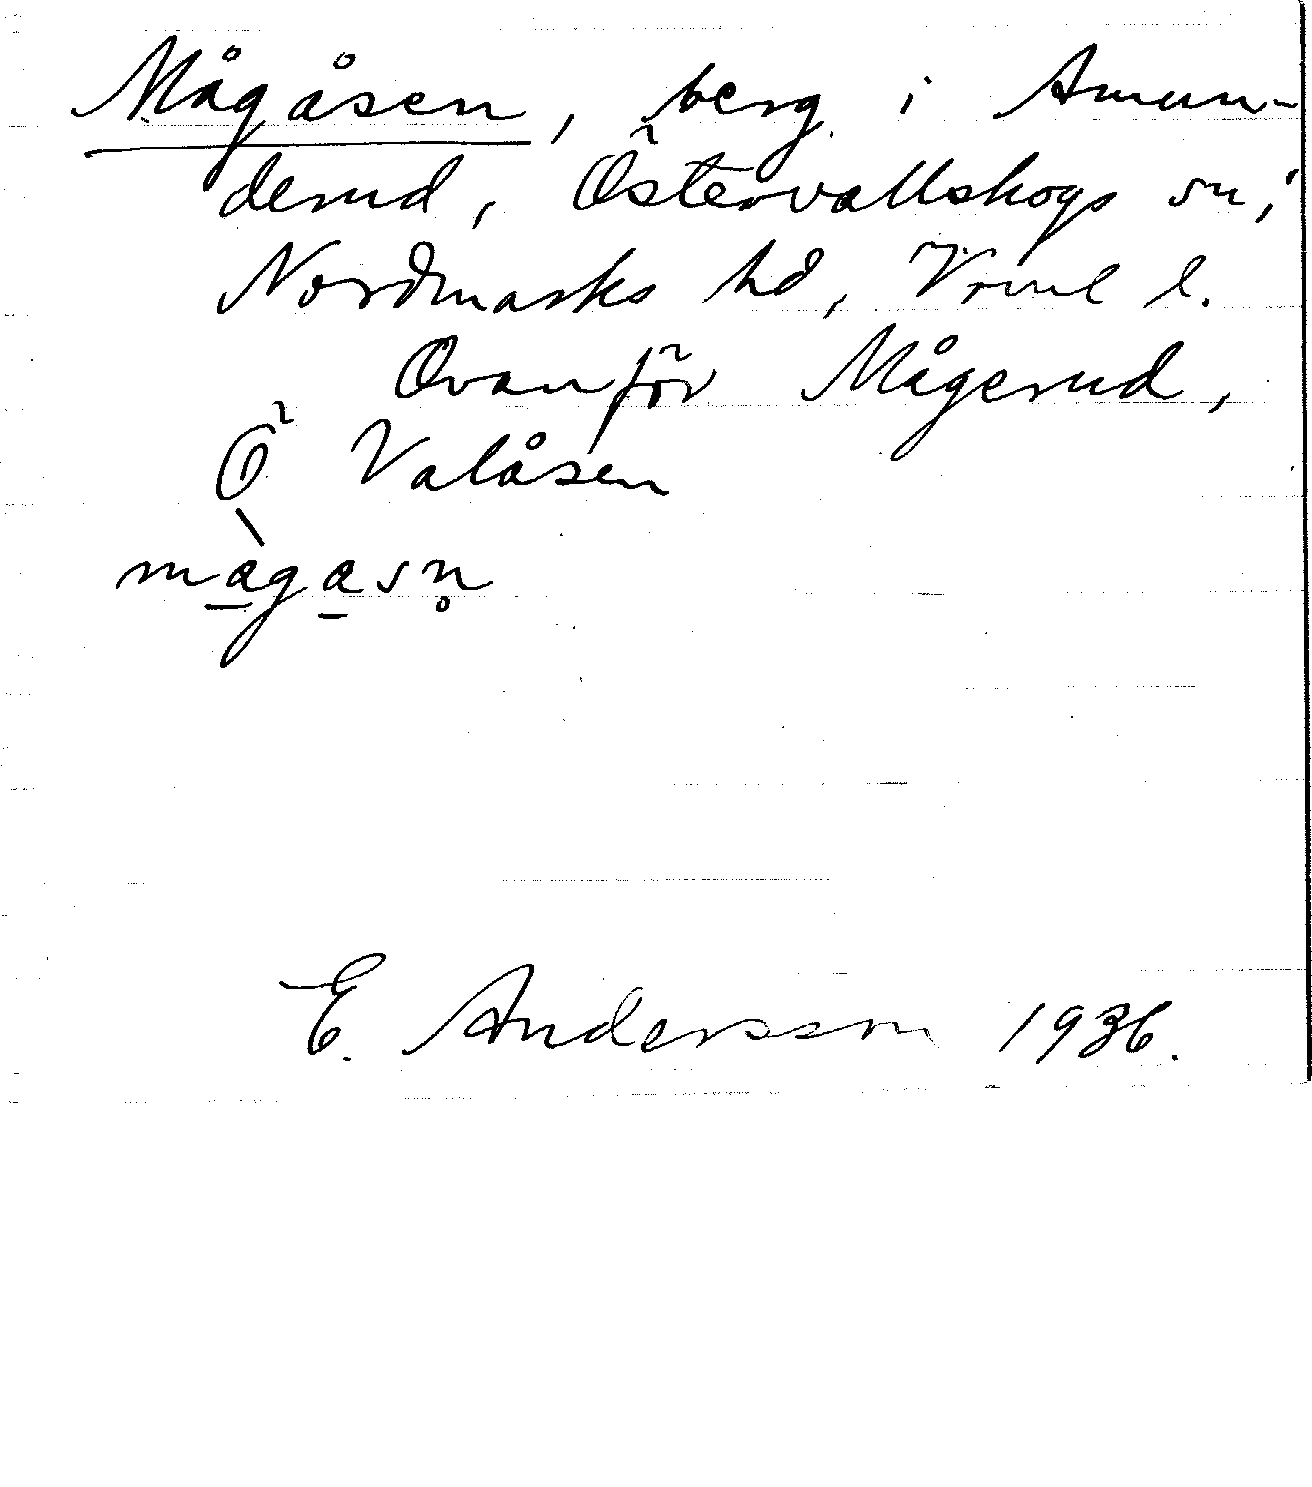 Mågåsen, berg i Amun-
derud, Östervallskogs sn,
Nordmarks hd, Vrml l.
Ovanför Mågerud,
Ö Valåsen
màgasn̥
E. Andersson 1936.